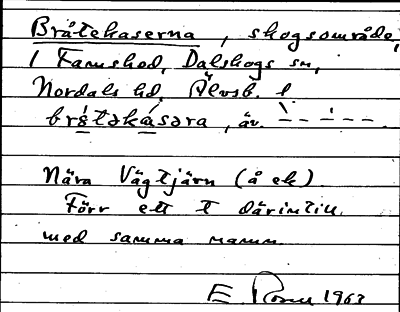 Bråtekaserna, skogsområde,
i Famshed, Dalskogs sn,
Nordals hd, Älvsb. l.
bråtəkàsəra, äv. -̀ - -́ - -.
Nära Vägtjärn (å ek).
Förr ett t därintill
med samma namn.
E. 1967